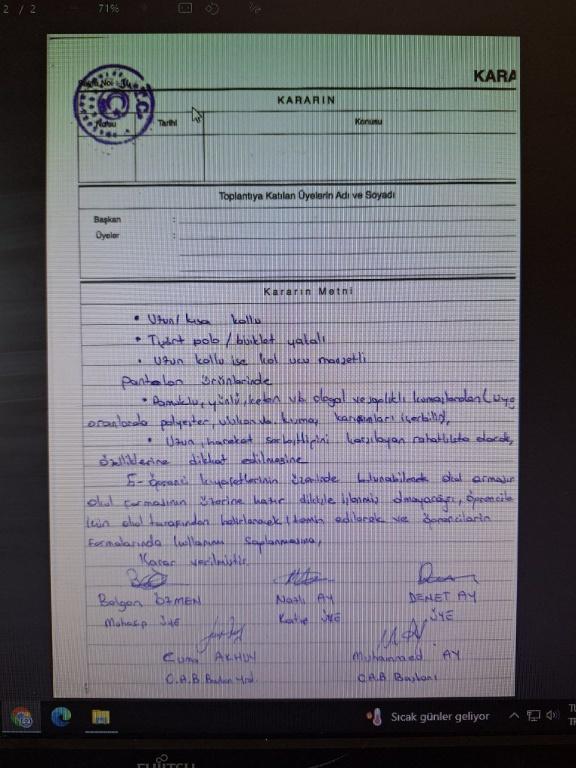 2 / 2
71%
KARA
Noi
KARARIN
Tarihi
Konusu
Toplantıya Katılan Üyelerin Adı ve Soyadı
Başkan :
Üyeler :
Kararın Metni
• Uzun/ kısa kollu
• Tişört polo / bisiklet yakalı
• Uzun kollu ise kol ucu manşetli
Pantolon ürünlerinde
• Pamuklu, yünlü, keten vb doğal ve sağlıklı kumaşlardan (
oranlarda polyester, kumaş karışımları içerbilir),
• Uzun, hareket serbestliğini karşılayan rahatlıkta olarak,
özelliklerine dikkat edilmesine
5- Öğrenci kıyafetlerinin üzerinde bulunabilecek okul armasın
okul formasının üzerine hazır dikişle işlenmiş olmayacağı, öğrencile
için okul tarafından belirlenerek / temin edilerek ve öğrencilerin
formalarında kullanımı sağlanmasına,
Karar verilmiştir.
ÖZMEN Nazlı AY DENET AY
Muhasip ÜYE Katip ÜYE ÜYE
Cuma Muhammed AY
O.A.B Başkan Yrd. O.A.B Başkanı
Sıcak günler geliyor
FUJITSU